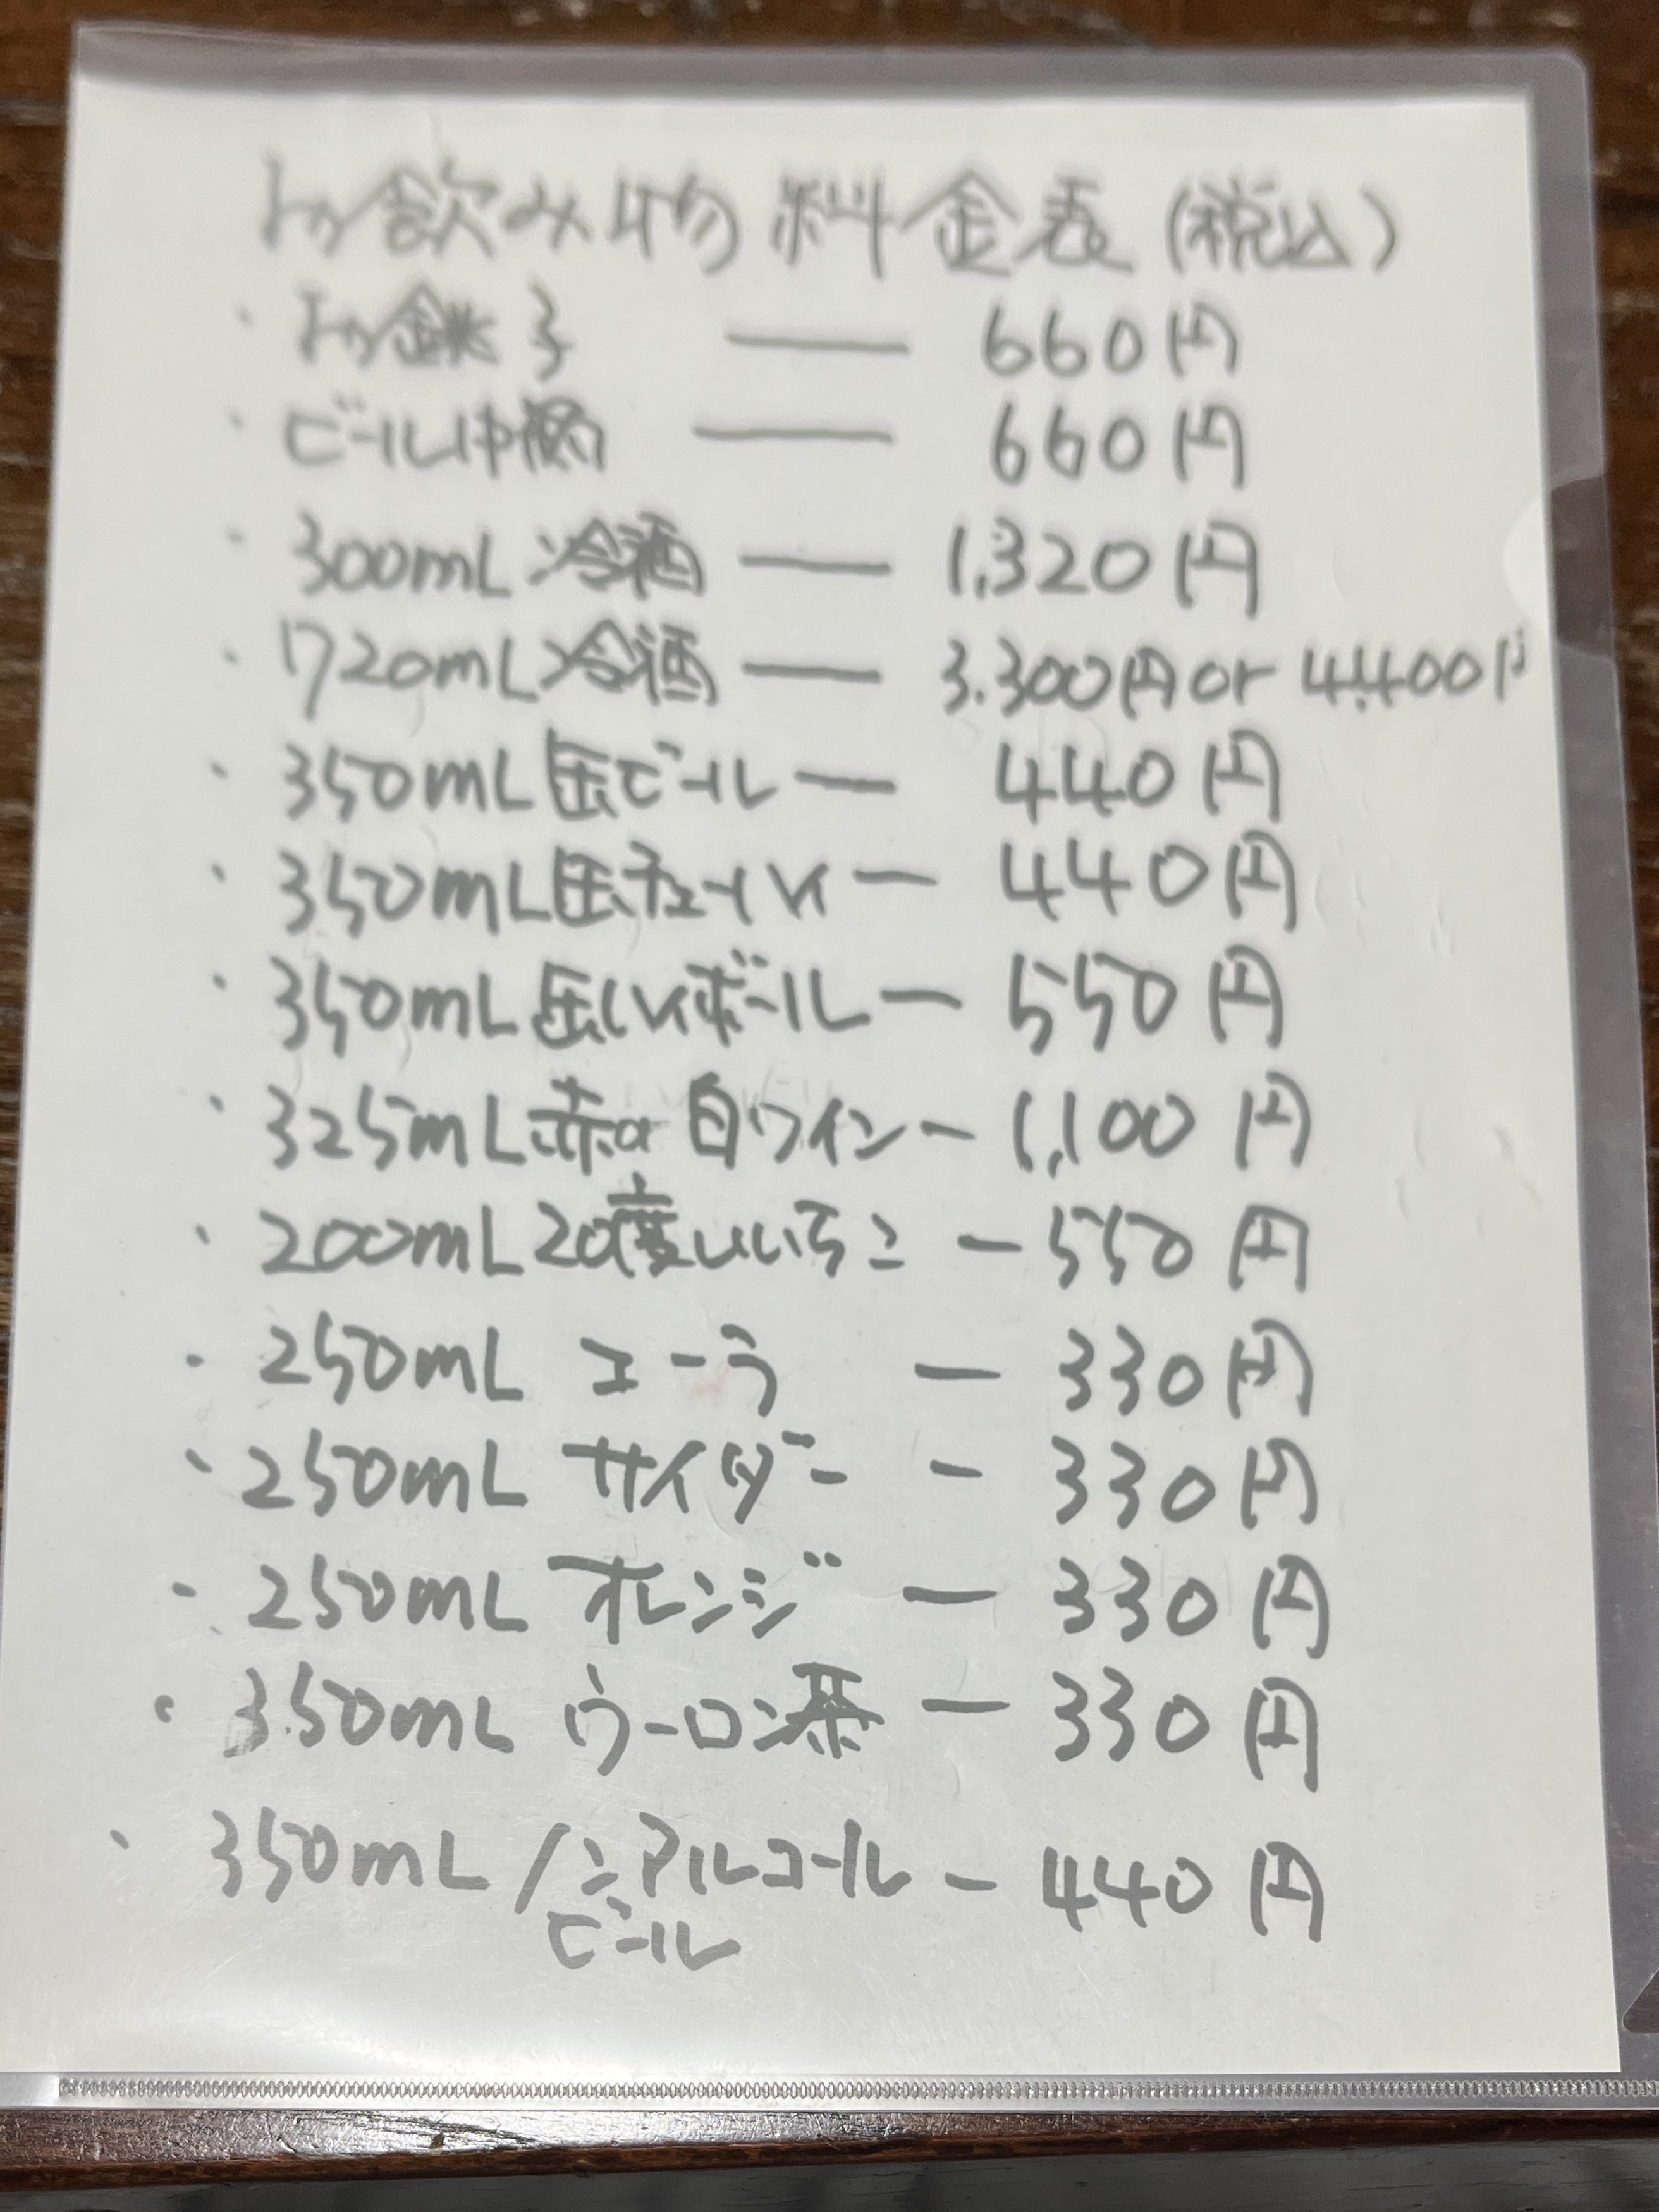 お飲み物 料金表 (税込)
・お銚子 — 660円
・ビール中瓶 — 660円
・300mL冷酒 — 1,320円
・720mL冷酒 — 3.300円or 4.400円
・350mL缶ビール — 440円
・350mL缶チューハイ — 440円
・350mL缶ハイボール — 550円
・325mL赤or白ワイン — 1,100円
・200mL20度いいちこ — 550円
・250mL コーラ — 330円
・250mL サイダー — 330円
・250mL オレンジ — 330円
・350mL ウーロン茶 — 330円
・350mL ノンアルコール — 440円
ビール